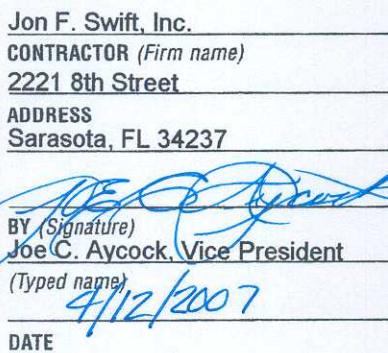 Jon F. Swift, Inc.
CONTRACTOR (Firm name)
2221 8th Street
ADDRESS
Sarasota, FL 34237
Joe C Aycock
BY (Signature)
Joe C. Aycock, Vice President
(Typed name)
4/12/2007
DATE